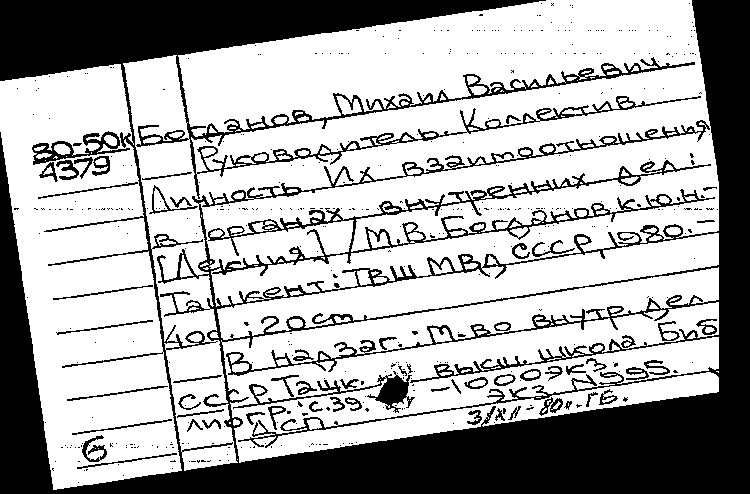 80-50к
4379
Богданов, Михаил Васильевич.
Руководитель. Коллектив.
Личность. Их взаимоотношения
в органах внутренних дел:
[Лекция] / М.В. Богданов, к.ю.н.-
Ташкент: ТВШ МВД СССР, 1980.-
40с.; 20 см.
В надзаг.: М-во внутр. дел
СССР. Ташк. высш. школа. Биб
лиогр.: с.39. -1000экз.
ДСП. экз. N595.
3/XII-80г. ГБ.
6